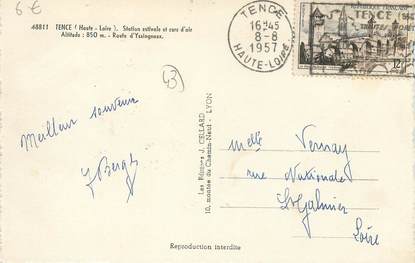 6 €
48811 TENCE (Haute - Loire). Station estivale et cure d'air
Altitude : 850 m. - Route d'Yssingeaux.
TENCE
16H45
8-8
1957
HAUTE-LOIRE
TENCE
12F
43
Meilleur souvenir
Les Éditions J. CELLARD
10, montée du Chemin-Neuf - LYON
Melle Vernay
rue Nationale
St Galmier
Loire
Reproduction interdite